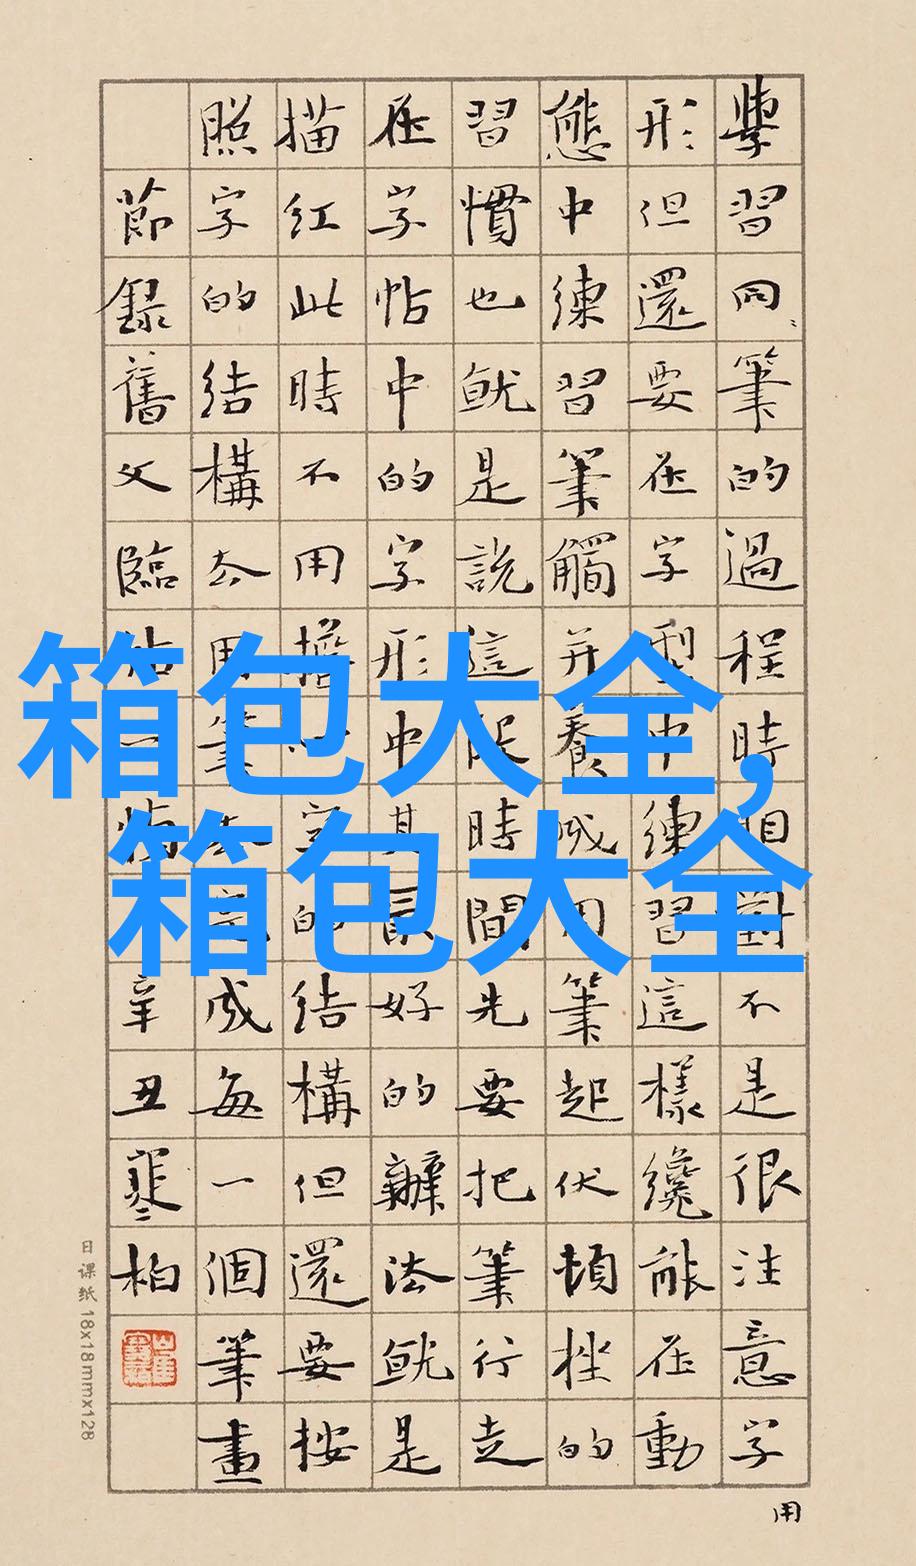 學習同筆的過程時相對不是很注意字
形但還要在字型中練習這樣纔能在動
態中練習筆觸并養成用筆起伏頓挫的
習慣也就是說這段時間先要把筆行走
在字帖中的字形中其最好的辦法就是
描紅此時不用擔心字的結構但還要按
照字的結構去用筆去完成每一個筆畫
節錄舊文臨帖一悟辛丑寒柏
用
日课纸 18x18mmx128
箱包大全,
箱包大全